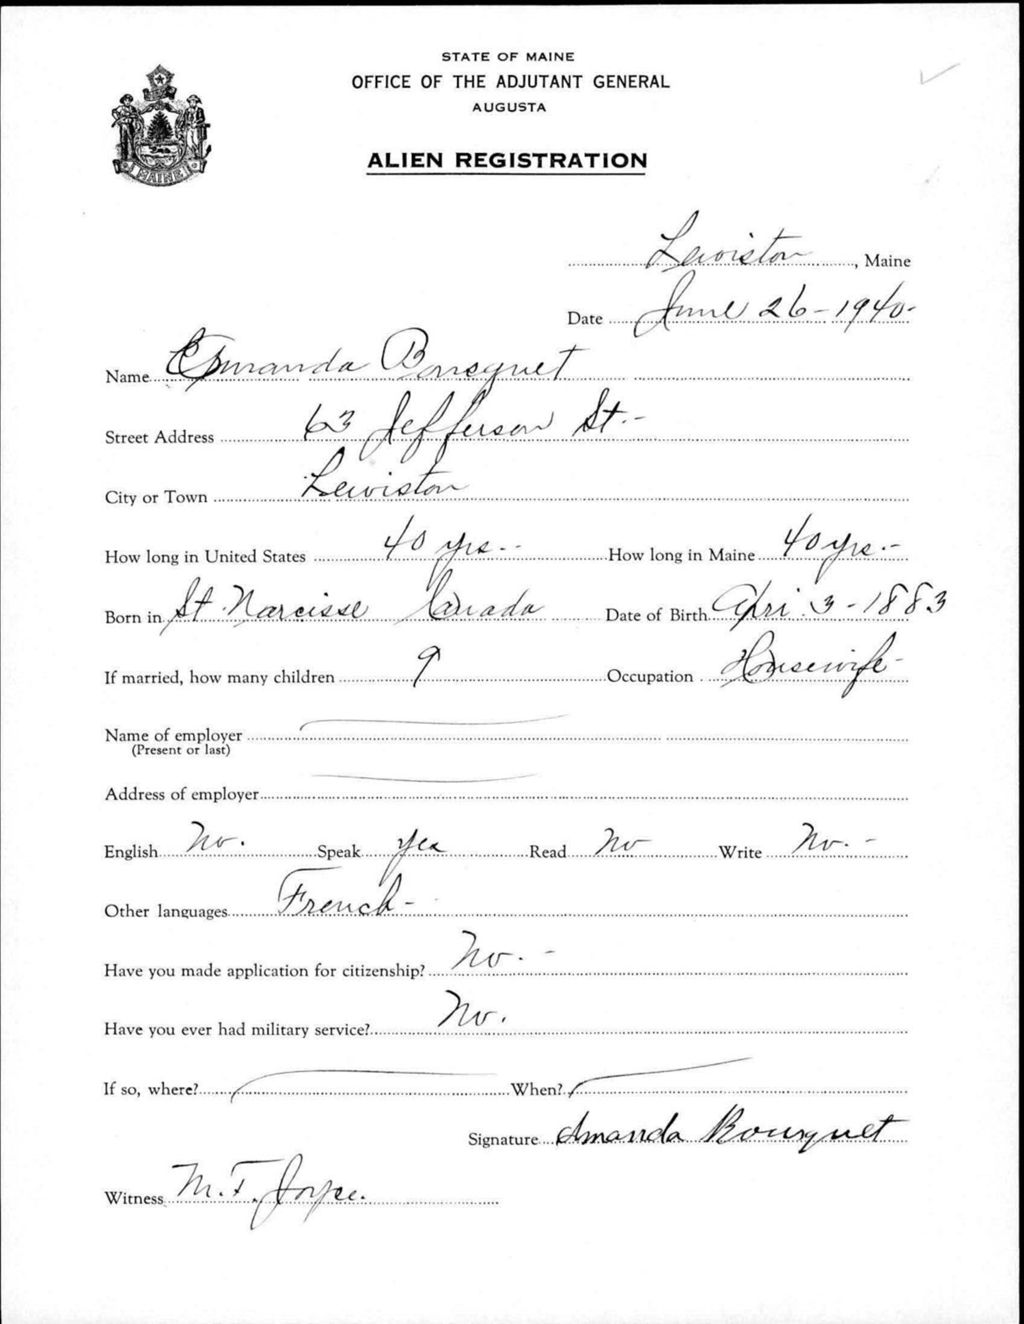 STATE OF MAINE
OFFICE OF THE ADJUTANT GENERAL
AUGUSTA
MAINE
ALIEN REGISTRATION
Lewiston, Maine
Date June 26-1940-
Name Amanda Bousquet
Street Address 63 Jefferson St.-
City or Town Lewiston
How long in United States 40 yrs.- How long in Maine 40 yrs.-
Born in St. Narcisse Canada Date of Birth Apri. 3-1883
If married, how many children 9 Occupation Housewife-
Name of employer
(Present or last)
Address of employer
English No. Speak Yes Read No Write No.-
Other languages French-
Have you made application for citizenship? No.-
Have you ever had military service? No.
If so, where? When?
Signature Amanda Bousquet
Witness M. T. Joyce.